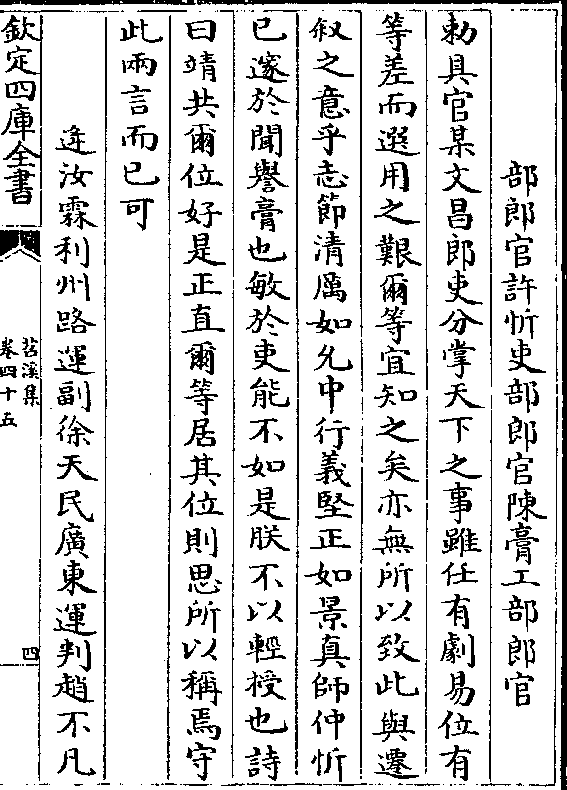 部郎官許忻吏部郎官陳膏工部郎官
勅具官某文昌郎吏分掌天下之事雖任有劇易位有
等差而選用之艱爾等宜知之矣亦無所以致此與遷
叙之意乎志節清厲如允中行義堅正如景真師仲忻
已邃於聞譽膏也敏於吏能不如是朕不以輕授也詩
曰靖共爾位好是正直爾等居其位則思所以稱焉守
此兩言而已可
逄汝霖利州路運副徐天民廣東運判趙不凡
欽定四庫全書
苕溪集
卷四十五
四